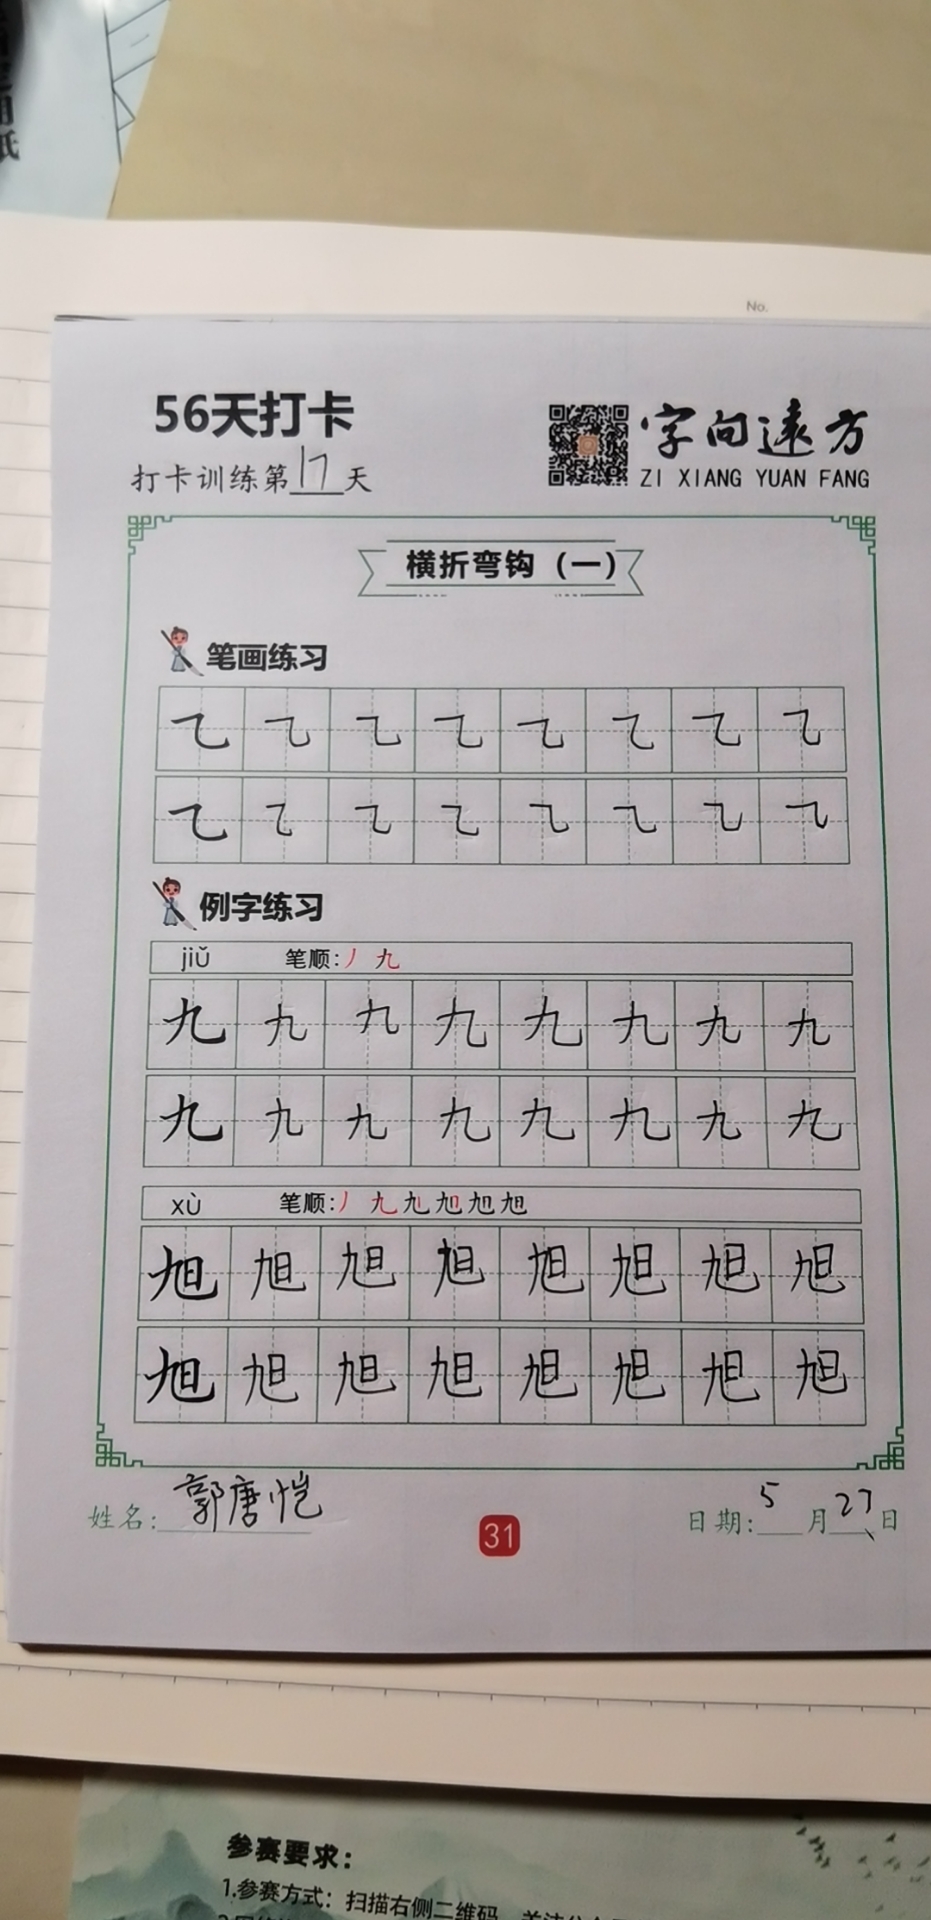 No.
56天打卡
字向遠方
打卡训练第17天
ZI XIANG YUAN FANG
横折弯钩（一）
笔画练习
㇈ ㇈ ㇈ ㇈ ㇈ ㇈ ㇈ ㇈
㇈ ㇈ ㇈ ㇈ ㇈ ㇈ ㇈ ㇈
例字练习
jiǔ 笔顺:丿 九
九 九 九 九 九 九 九 九
九 九 九 九 九 九 九 九
xù 笔顺:丿 九 旭 旭 旭 旭
旭 旭 旭 旭 旭 旭 旭 旭
旭 旭 旭 旭 旭 旭 旭 旭
姓名:郭唐恺
31
日期:5月27日
参赛要求：
1.参赛方式：扫描右侧二维码